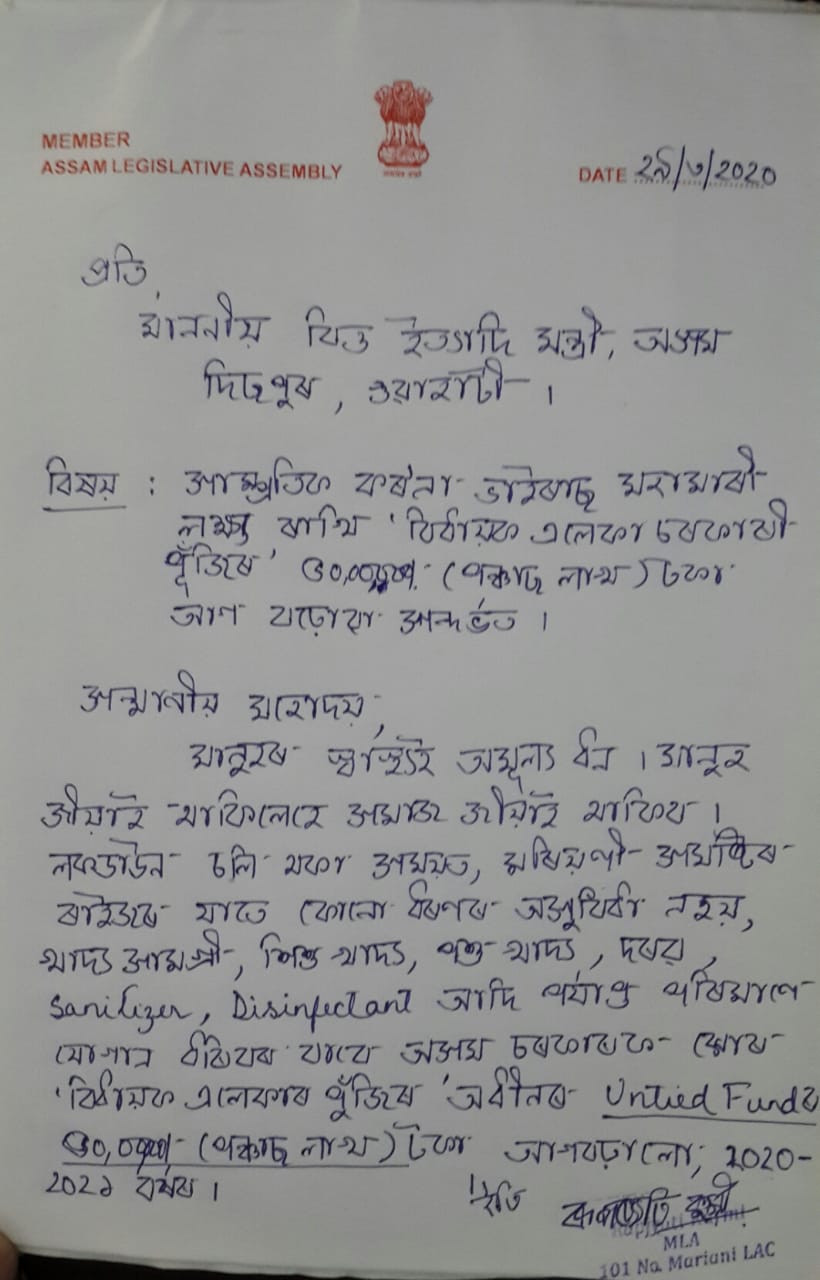 MEMBER
ASSAM LEGISLATIVE ASSEMBLY
DATE ২৯/৩/2020
প্ৰতি,
মাননীয় বিত্ত ইত্যাদি মন্ত্ৰী, অসম
দিছপুৰ, গুৱাহাটী ।
বিষয় : সাম্প্ৰতিক কৰ'না ভাইৰাছ মহামাৰী
লক্ষ্য ৰাখি 'বিধায়ক এলেকা চৰকাৰী
পুঁজিৰে' (পঞ্চাছ লাখ) টকা
আগ বঢ়োৱা সন্দৰ্ভত ।
সন্মানীয় মহোদয়,
মানুহৰ স্বাস্থ্যই অমূল্য ধন । মানুহ
জীয়াই থাকিলেহে সমাজ জীয়াই থাকিব ।
লকডাউন চলি থকা সময়ত, মৰিয়ণী সমষ্টিৰ
ৰাইজৰ যাতে কোনো ধৰণৰ অসুবিধা নহয়,
খাদ্য সামগ্ৰী, শিশু খাদ্য, পশু খাদ্য, দৰৱ,
Sanitizer, Disinfectant আদি পৰ্যাপ্ত পৰিমাণে
যোগান ধৰিবৰ বাবে অসম চৰকাৰক মোৰ
'বিধায়ক এলেকাৰ পুঁজিৰ' অধীনৰ Untied Fundৰ
(পঞ্চাছ লাখ) টকা আগবঢ়ালো, 2020-
202১ বৰ্ষৰ ।
ইতি
MLA
101 No. Mariani LAC